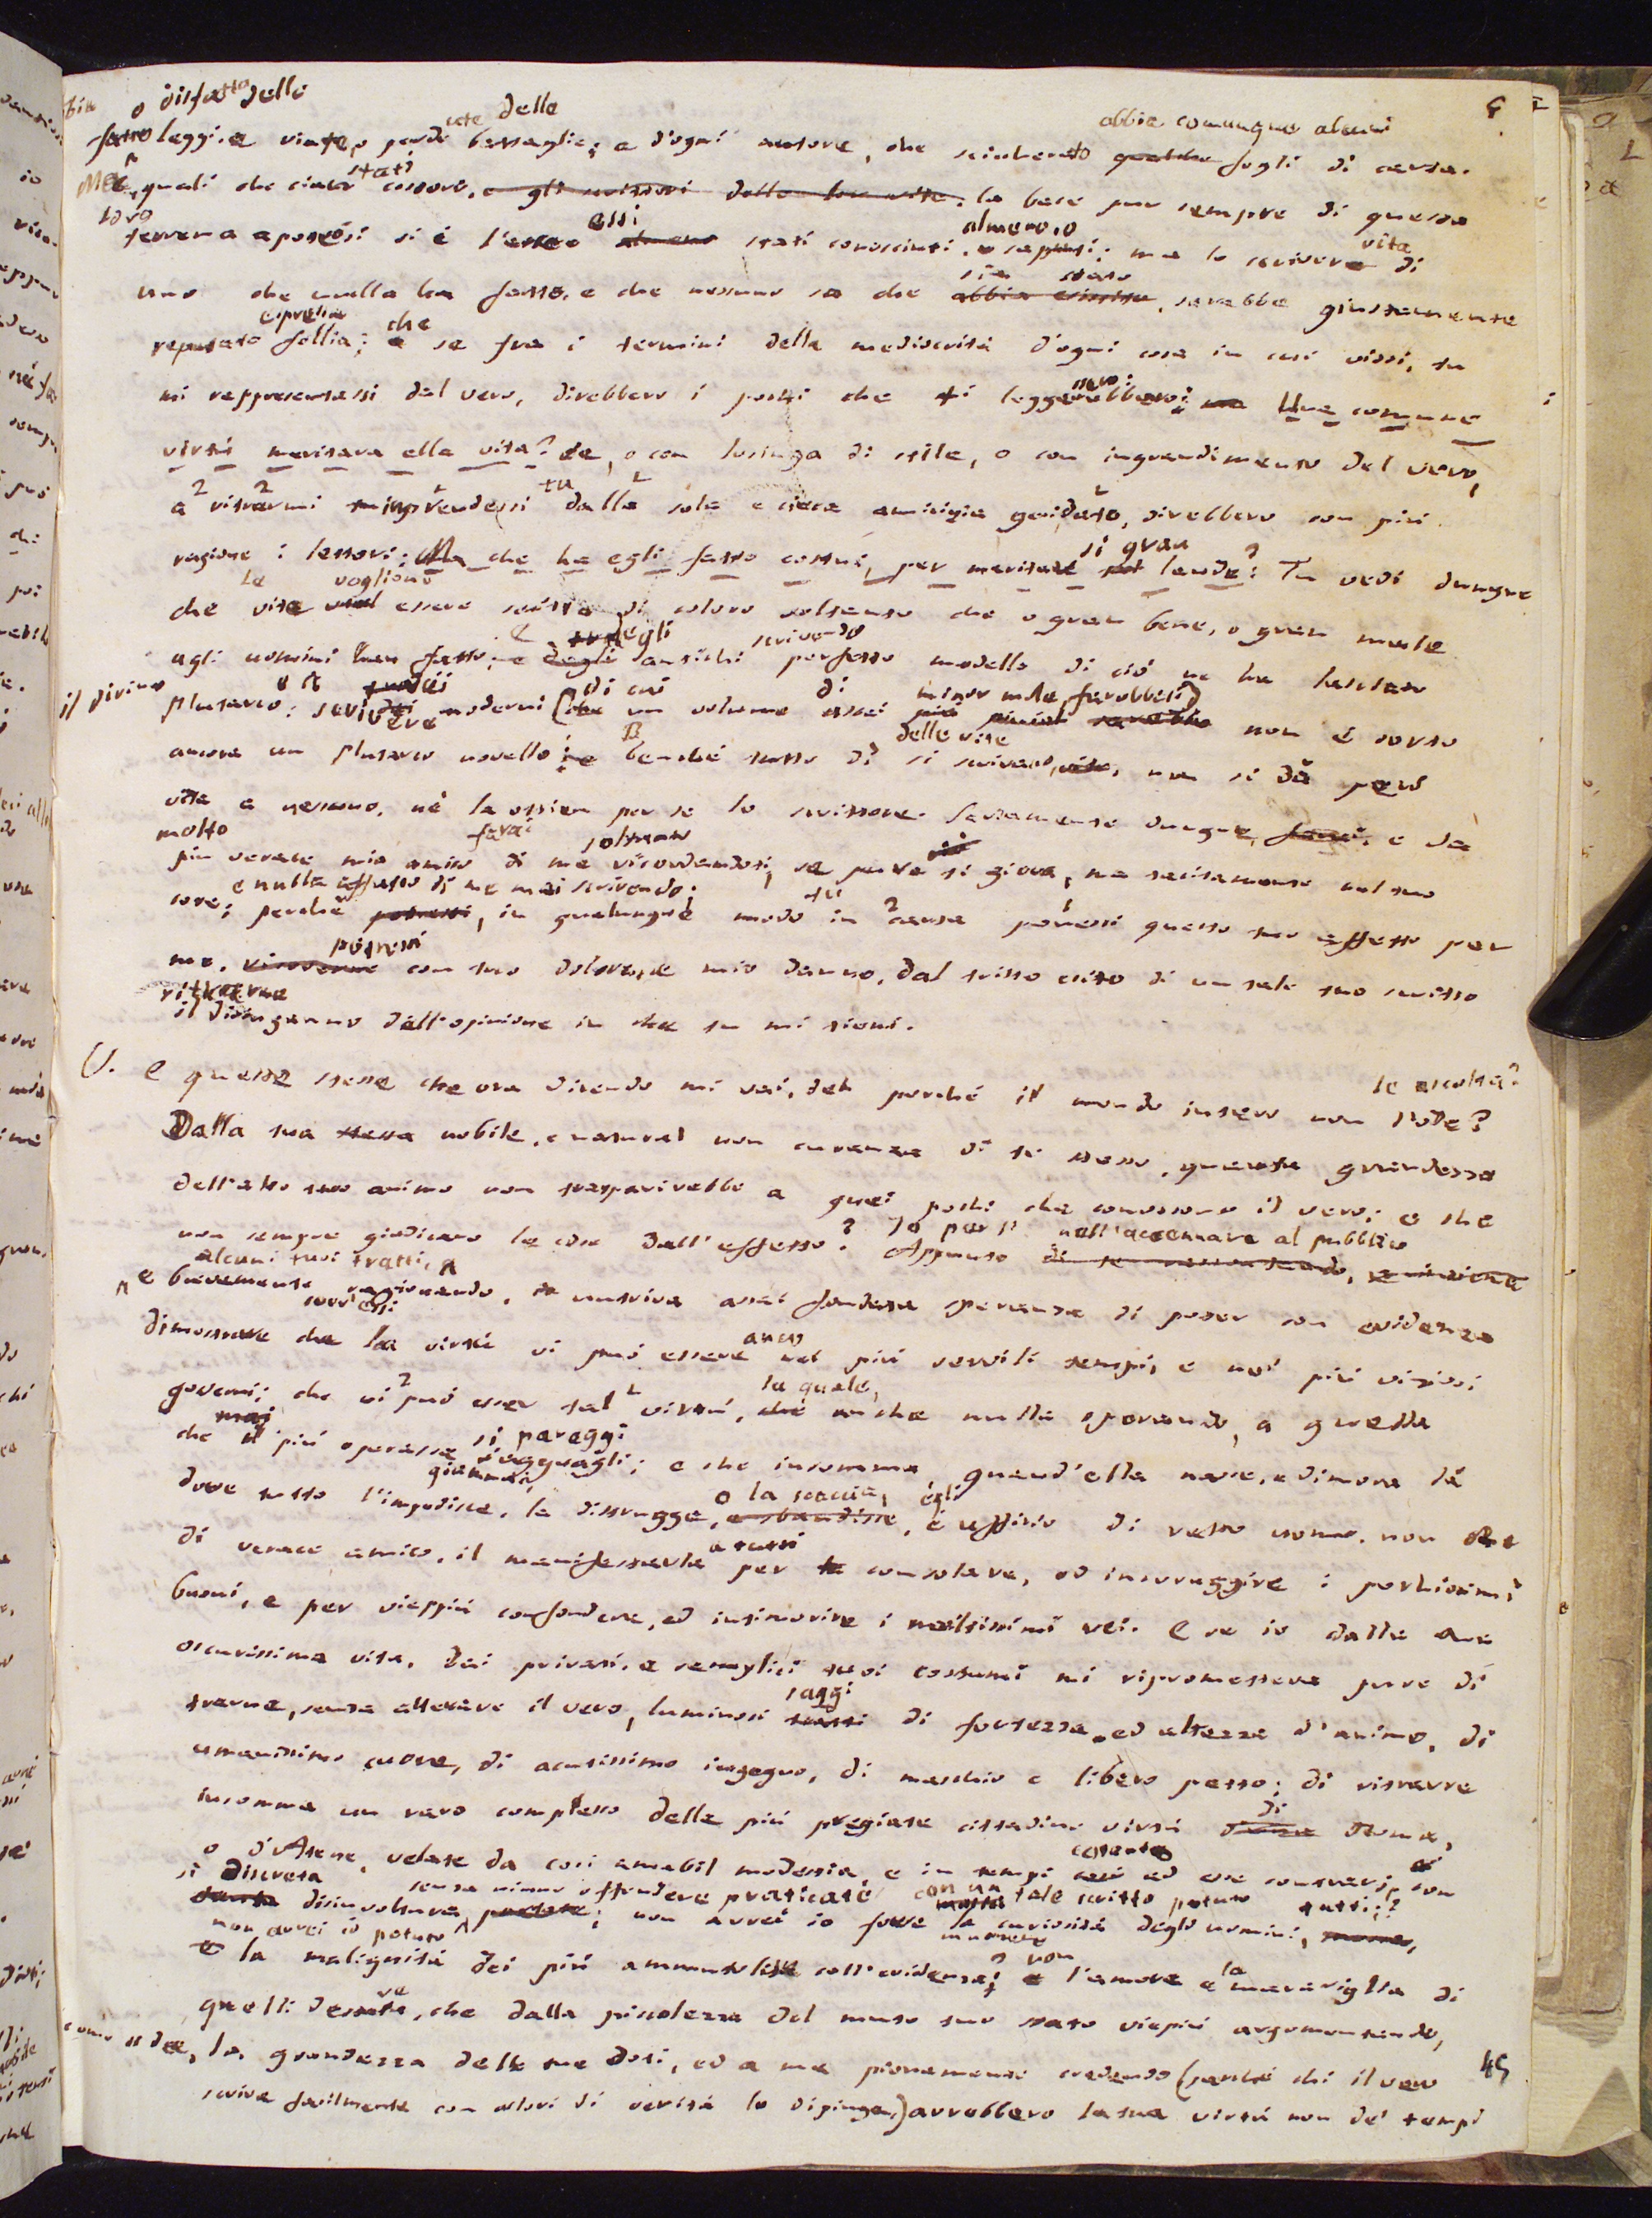 o disfatto delle
cete delle
abbia comunque alcuni
fatto leggi, e vinte, o perdute battaglie; e d'ogni autore, che schiccherato qualche fogli di carta.
Ma, quali che siansi stati costoro, e gli scrittori delle loro vite, la base pur sempre di questa
loro essi almeno, o vita
terrena apoteosi si è l'essere almeno stati conosciuti, o saputi: ma lo scrivere di
sia stato
uno che nulla ha fatto, e che nessuno sa che abbia esistito, sarebbe giustamente
espressa che
reputato follia; e se fra i termini della mediocrità d'ogni cosa in cui vissi, tu
mi rappresentassi dal vero, direbbero i pochi che ti leggerebbero; ma Una comune
virtù meritava ella vita? Se, o con lusinga di stile, o con ingrandimento del vero,
a ritrarmi imprendessi tu dalla sola e cieca amicizia guidato, direbbero con più
sì gran
ragione i lettori: Ma che ha egli fatto costui, per meritare tal laude? Tu vedi dunque
Le vogliono
che vite vuol essere scritta di coloro soltanto che o gran bene, o gran male
E degli scrivendo
agli uomini han fatto; e degli antichi perfetto modello di ciò ne ha lasciato
il divino
di cui di minor mole farebbesi
Plutarco: scrivere moderni (che un volume assai più piccial sarebbe non è sorto
delle vite
ancora un Plutarco novello; e benchè tutto dì si scrivano vite, non si dà però
vita a nessuno, nè la ottien per se lo scrittore. Saviamente dunque, farai, e da
molto farai soltanto
più verace mio amico di me ricordandoti, se pure ciò ti giova, ma tacitamente nel tuo
e nulla affatto di me mai scrivendo: tu
core; perchè potresti, in qualunque modo in causa ponessi questo tuo affetto per
potresti
me, ricoverne con tuo dolore, e mio danno, dal tristo esito di un tale tuo scritto
ritrarne
il disinganno dall'opinione in che tu mi tieni.
le ascolta?
V. E queste stesse che ora dicendo mi vai, deh perchè il mondo intero non l'ode?
Dalla tua stessa nobile, e natural non curanza di te stesso, quanta grandezza
dell'alto tuo animo non trasparirebbe a quei pochi che conoscono il vero; e che
Io però nell'accennare al pubblico
non sempre giudicano le cose dall'effetto? Appunto
alcuni tuoi tratti,
e brevemente ragionando, nutriva assai fondata speranza di poter con evidenza
sovr'essi
dimostrare che la virtù vi può essere anco nei più servili tempi, e nei più viziosi
la quale,
governi; che vi può esser tal virtù, che anche nulla operando, a quella
mai si pareggi
che il più operasse s'agguagli; e che insomma, quand'ella nasce, e dimora là
giammai, o la scaccia, egli
dove tutto l'impedisce, la distrugge, e sbandisce, è uffizio di retto uomo, non che
a tutti
di verace amico, il manifestarla per te consolare, ed incoraggire i pochissimi
buoni, e per vieppiù confondere, ed intimorire i moltissimi rei. E se io dalla tua
oscurissima vita, dai privati, e semplici tuoi costumi mi riprometteva pure di
saggi
trarne, senza alterare il vero, luminosi tratti di fortezza, ed altezza d'animo, di
umanissimo cuore, di acutissimo ingegno, di maschio e libero petto; di ritrarre
di
insomma un raro complesso delle più pregiate cittadine virtù d'una Roma,
cotanto
o d'Atene, velate da così amabil modestia, e in tempi così ad esse contrarj, con
sì discreta senza nimmo offendere praticate con un tale scritto potuto tutti;?
tanta disinvoltura portate; non avrei io forse la curiosità degli uomini, mossa,
non avrei io potuto
e la malignità dei più ammutolita coll'evidenza? e non l'amore e la maraviglia di
quelli destare, che dalla picciolezza del muto tuo stato viepiù argomentando,
la grandezza delle tue doti, ed a me pienamente credendo (perchè chi il vero
scrive facilmente con colori di verità lo dipinge,) avrebbero la tua virtù non de' tempi
45